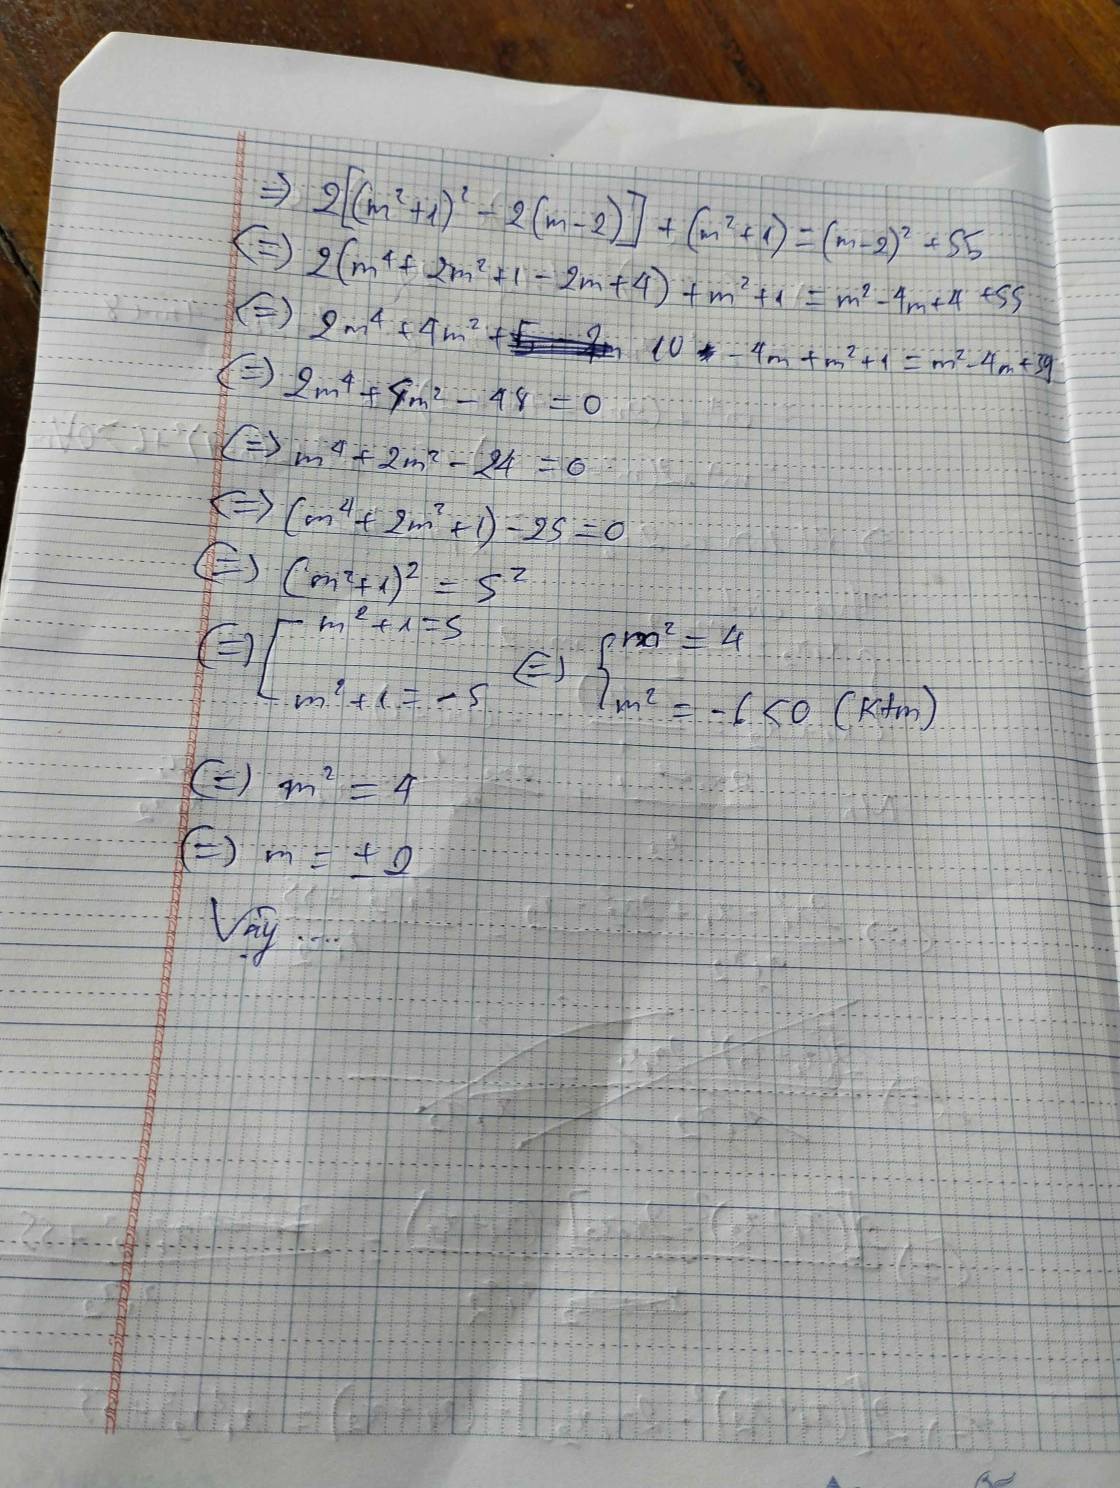 => 2[(m²+1)² - 2(m-2)] + (m²+1) = (m-2)² + 55
(=) 2(m⁴ + 2m² + 1 - 2m + 4) + m² + 1 = m² - 4m + 4 + 55
(=) 2m⁴ + 4m² + 10 - 4m + m² + 1 = m² - 4m + 59
(=) 2m⁴ + 4m² - 48 = 0
(=) m⁴ + 2m² - 24 = 0
(=) (m⁴ + 2m² + 1) - 25 = 0
(=) (m²+1)² = 5²
(=) [ m² + 1 = 5 (=) { m² = 4
m² + 1 = -5 m² = -6 < 0 (Ktm)
(=) m² = 4
(=) m = ± 2
Vậy ....